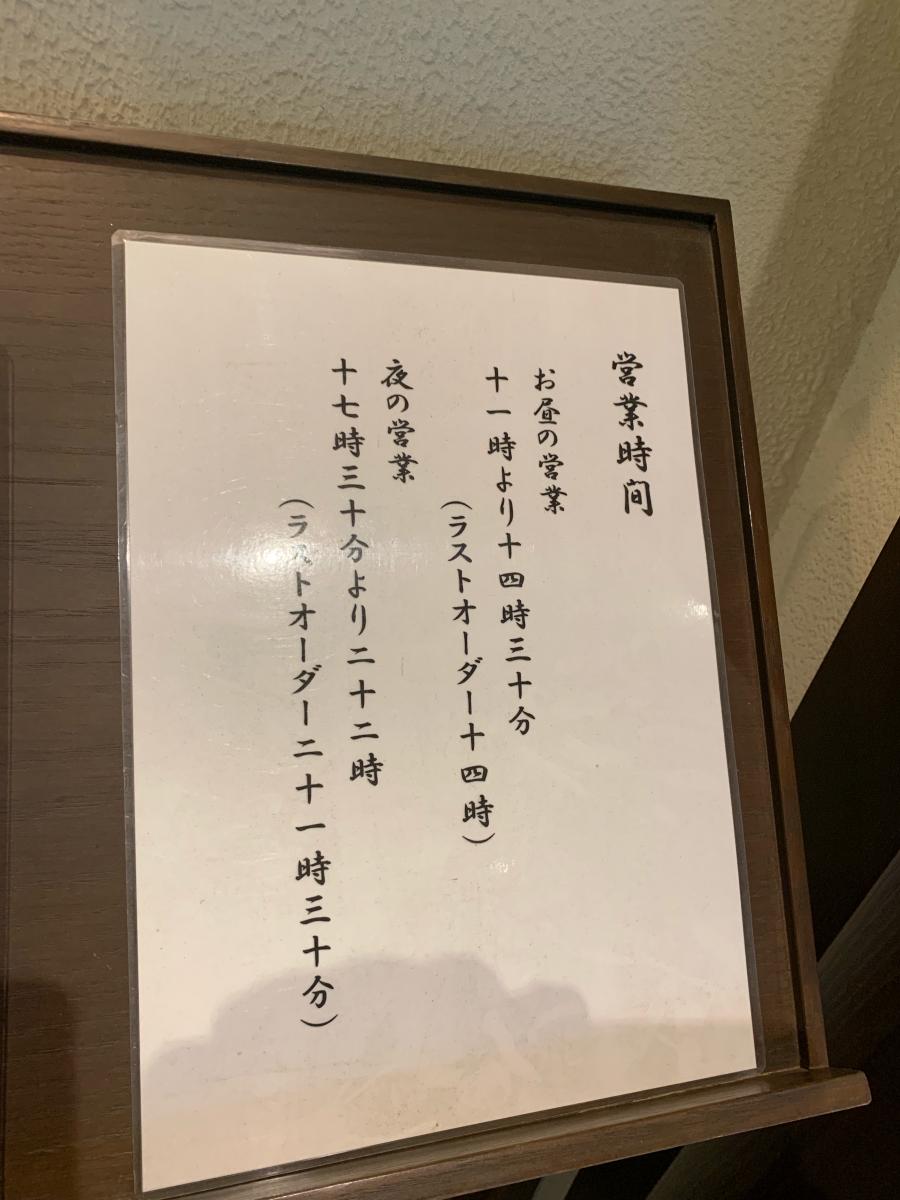 営業時間
お昼の営業
十一時より十四時三十分
（ラストオーダー十四時）
夜の営業
十七時三十分より二十二時
（ラストオーダー二十一時三十分）